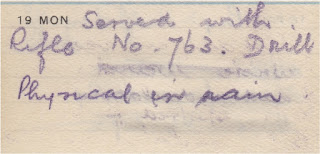 19 MON Served with
Rifle No. 763. Drill
Physical in rain.